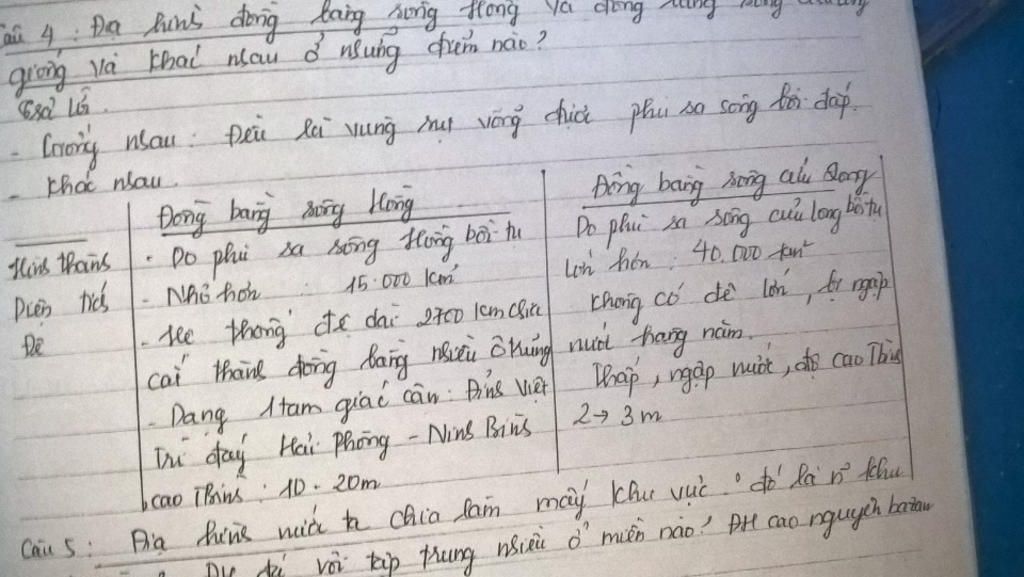 Câu 4: Địa hình đồng bằng sông Hồng và đồng bằng sông
giống và khác nhau ở những điểm nào?
Trả lời.
- Giống nhau: Đều là vùng sụt võng được phù sa sông bồi đắp.
- Khác nhau.
Đồng bằng sông Hồng
Đồng bằng sông cửu Long
Hình thành
- Do phù sa sông Hồng bồi tụ
Do phù sa sông cửu long bồi tụ
Diện tích
- Nhỏ hơn : 15.000 km²
Lớn hơn : 40.000 km²
Đê
- Hệ thống đê dài 2700 km chia
Không có đê lớn, bị ngập
cắt thành đồng bằng nhiều ô trũng
nước hàng năm.
- Dạng 1 tam giác cân: Đỉnh Việt
Thấp, ngập nước, độ cao TBình
Trì đáy Hải Phòng - Ninh Bình
2 → 3 m
cao TBình: 10 - 20m
Câu 5: Địa hình nước ta chia làm mấy khu vực đó là n² khu
vôi tập trung nhiều ở miền nào? ĐH cao nguyên bazan